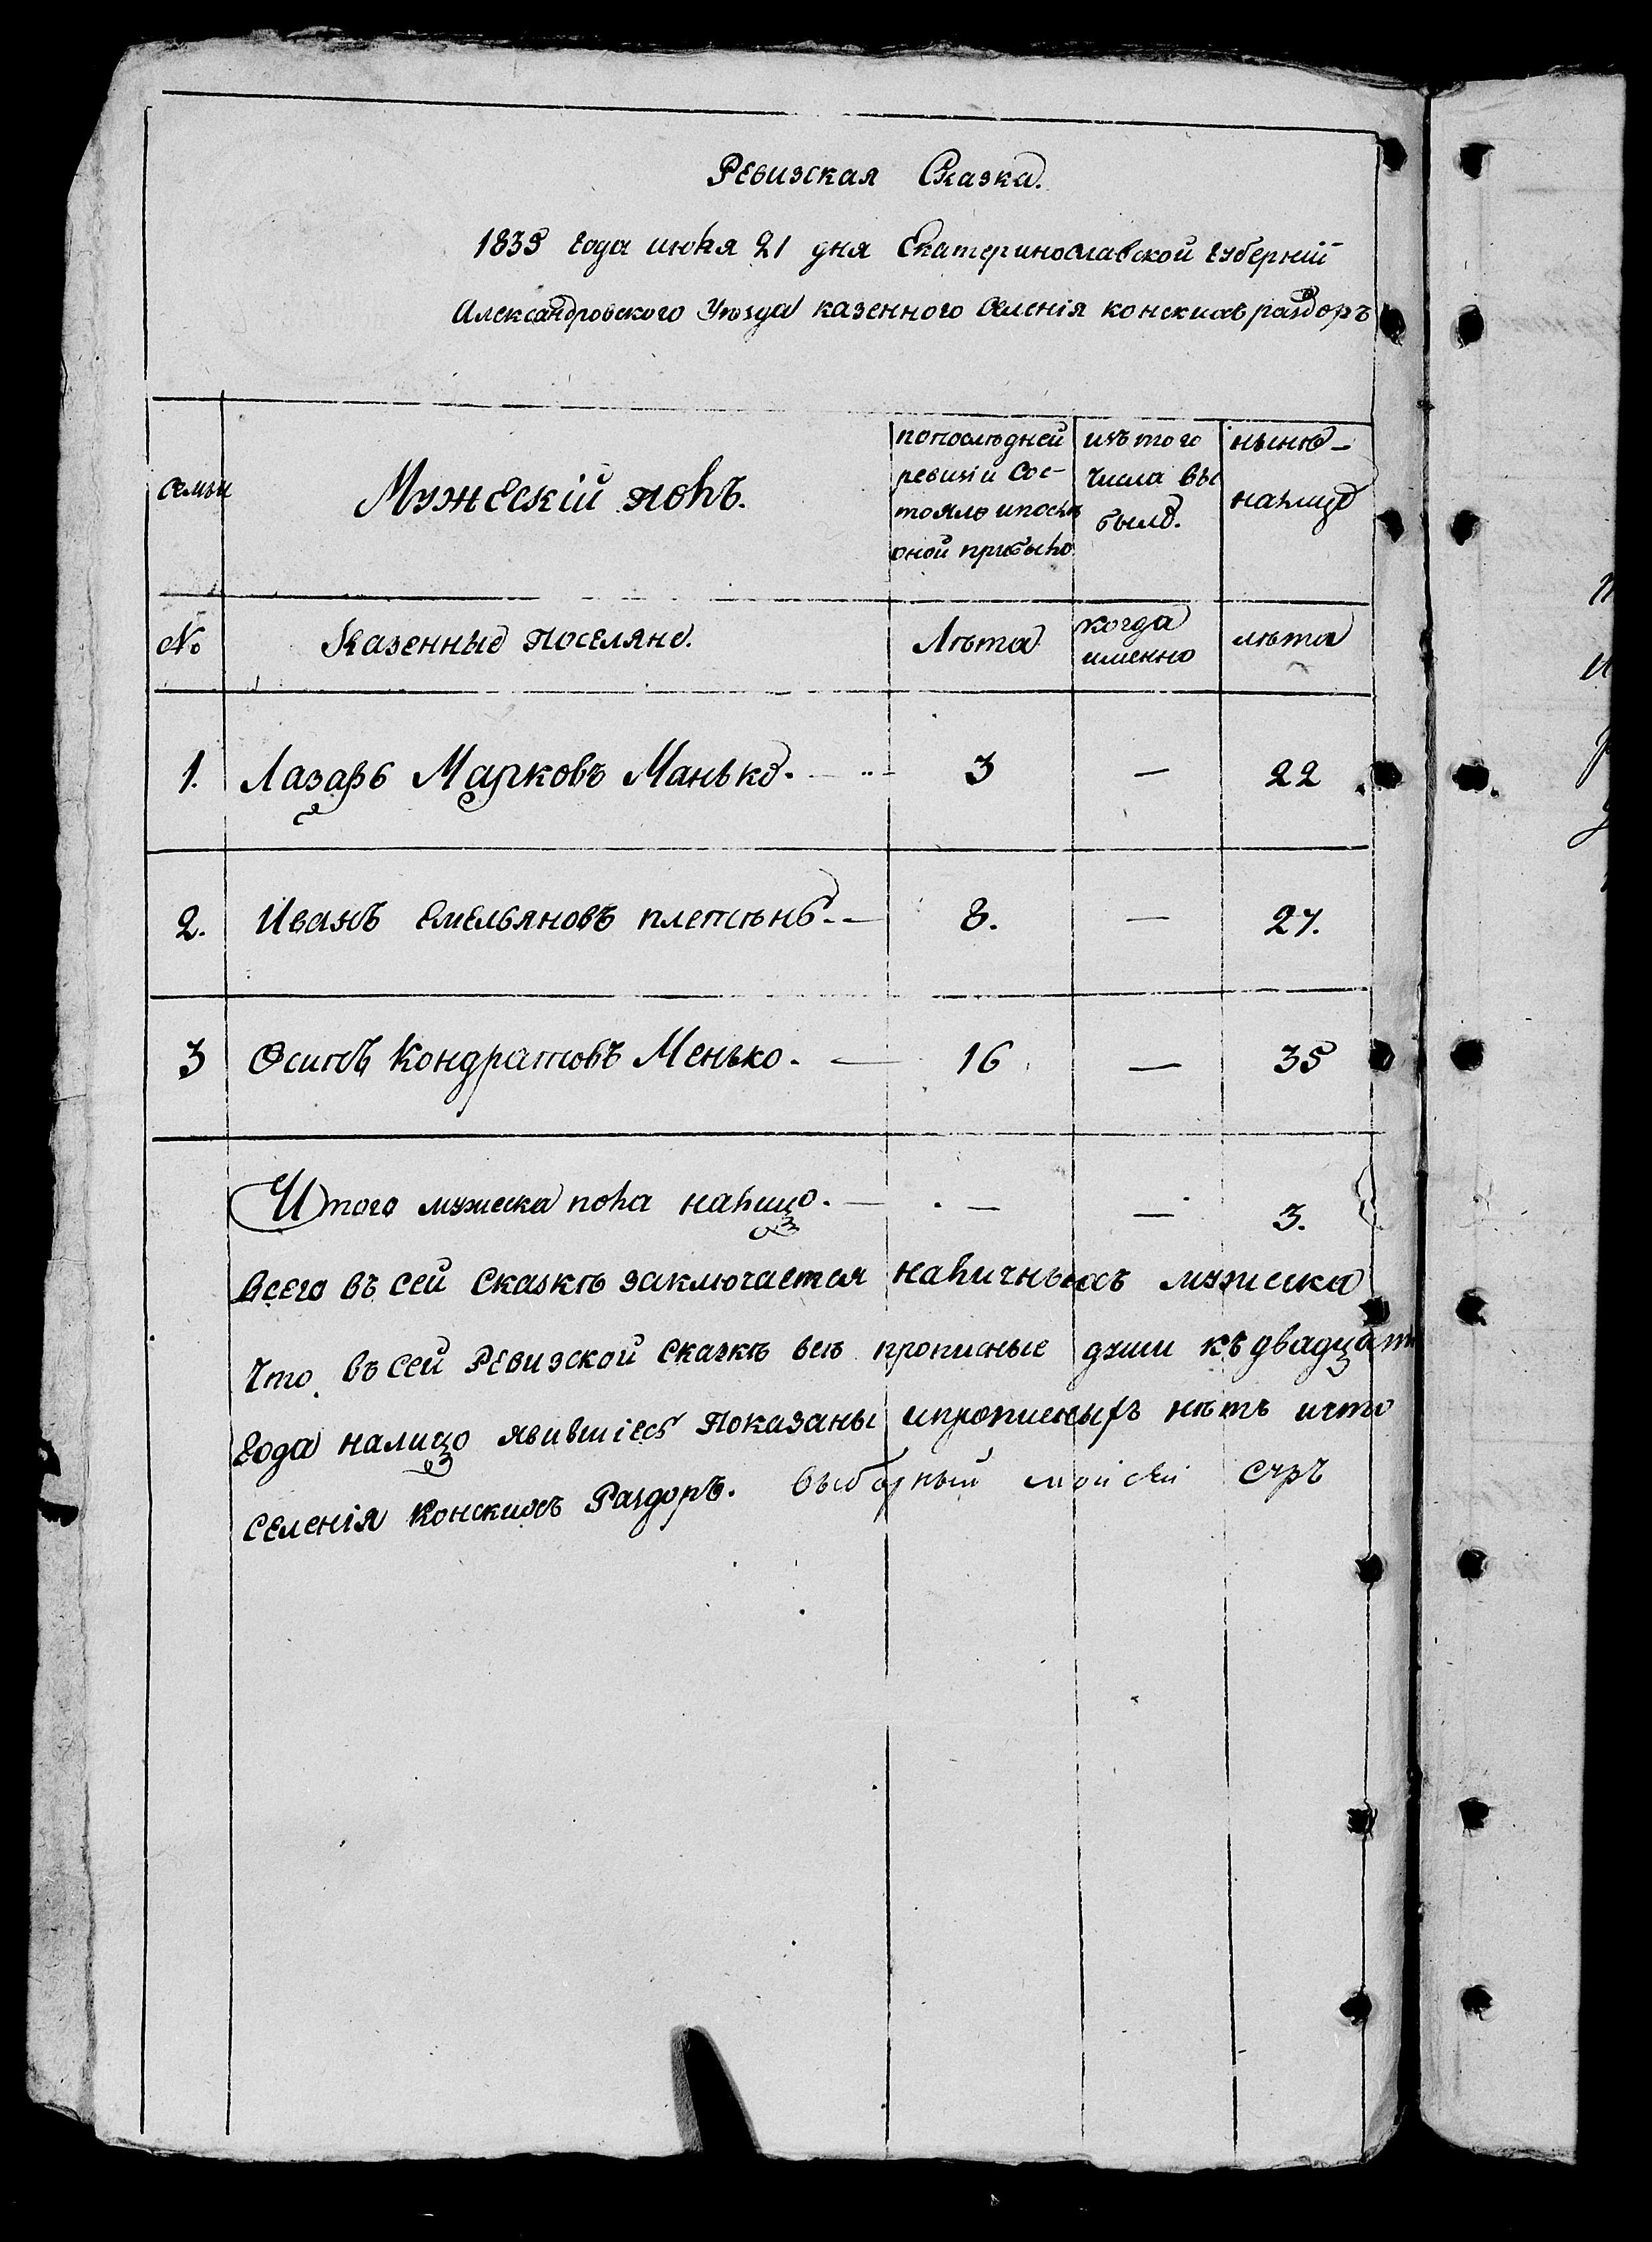 Ревизская Сказка.
1835 года июня 21 дня Екатеринославской губерніи
Александровского Уѣзда казенного селенія конскихъ раздоръ
семьи
Мужескій полъ.
попослѣдней
ревизіи Сос-
тояло ипослѣ
оной прибыло
изъ того
числа вы
было.
нынѣ-
налицо
№
Казенные поселяне.
Лѣта
когда
именно
лѣта
1. Лазарь Марковъ Манько. 3 — 22
2. Иванъ Емельяновъ плетѣнь. — 8. — 27.
3 Осипъ Кондратовъ Менько. — 16 — 35
Итого мужеска пола налицо. — — — 3.
всего въ сей сказкѣ заключается наличныхъ мужеска
Что въ сей Ревизской сказкѣ всѣ прописные души къ двадцати
года налицо явившіесь показаны ипрописныхъ нѣтъ ичто
селенія Конскихъ Раздоръ. выборный